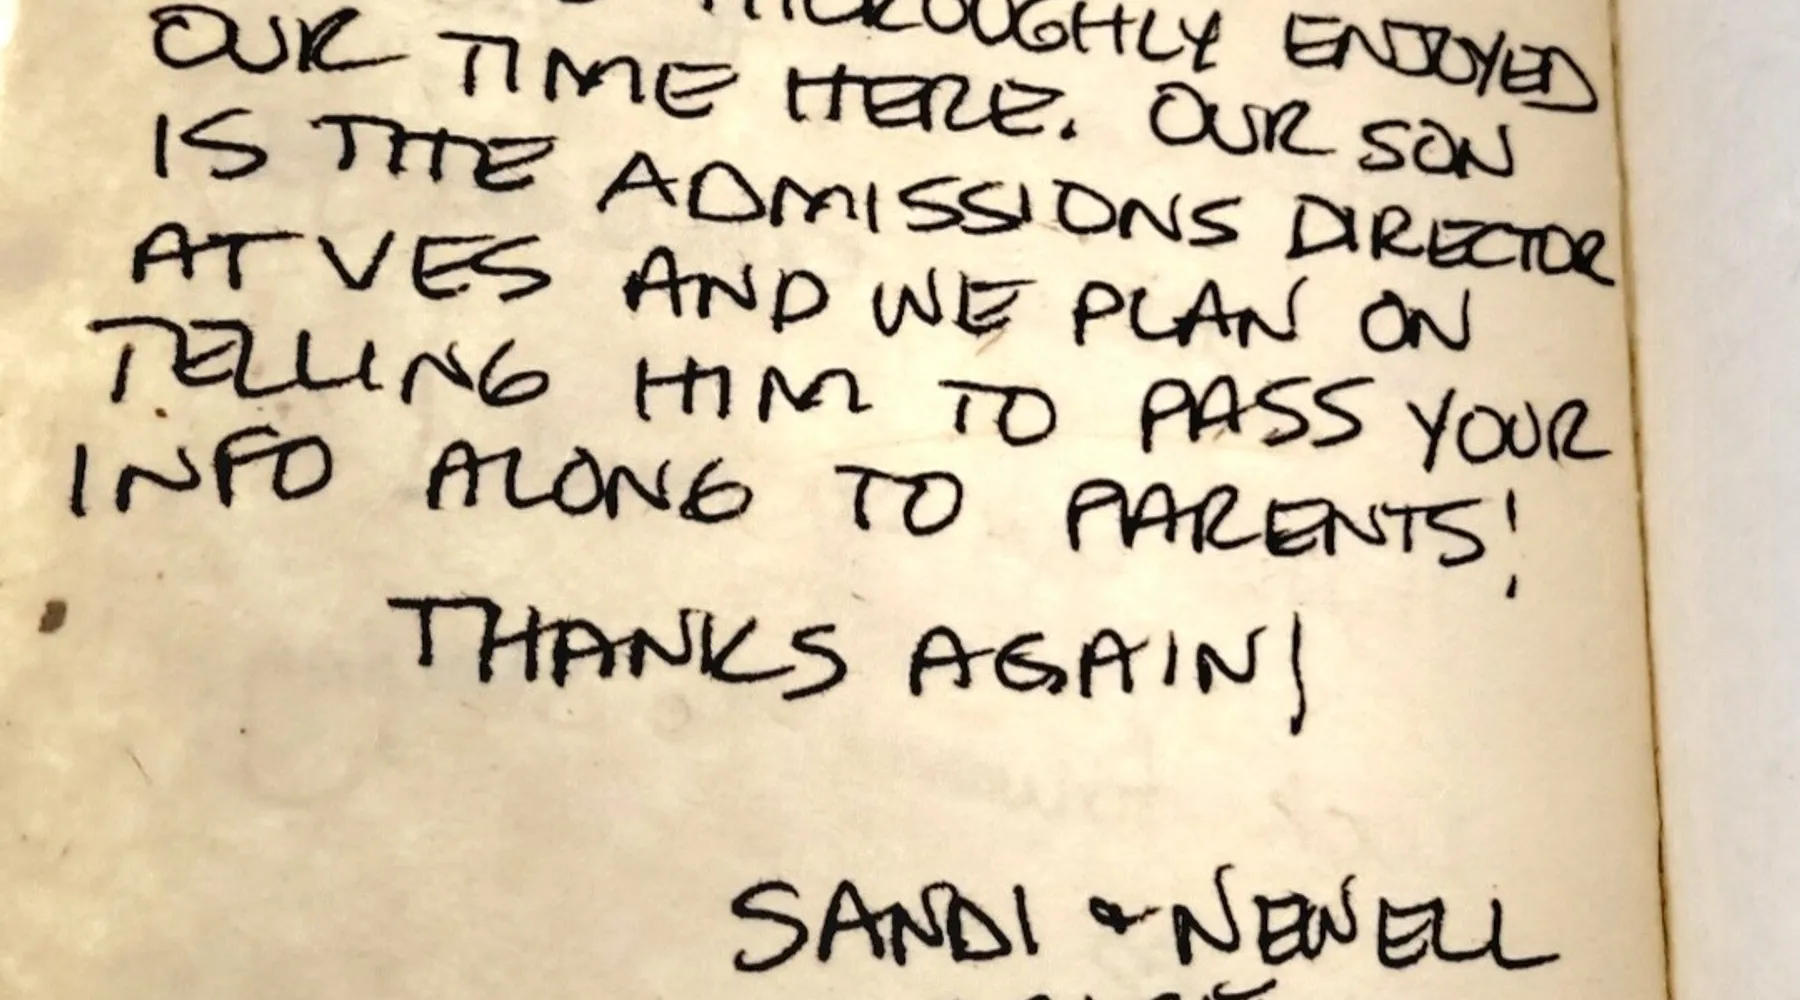 THOROUGHLY ENJOYED
OUR TIME HERE. OUR SON
IS THE ADMISSIONS DIRECTOR
AT VES AND WE PLAN ON
TELLING HIM TO PASS YOUR
INFO ALONG TO PARENTS!
THANKS AGAIN!
SANDI & NEWELL